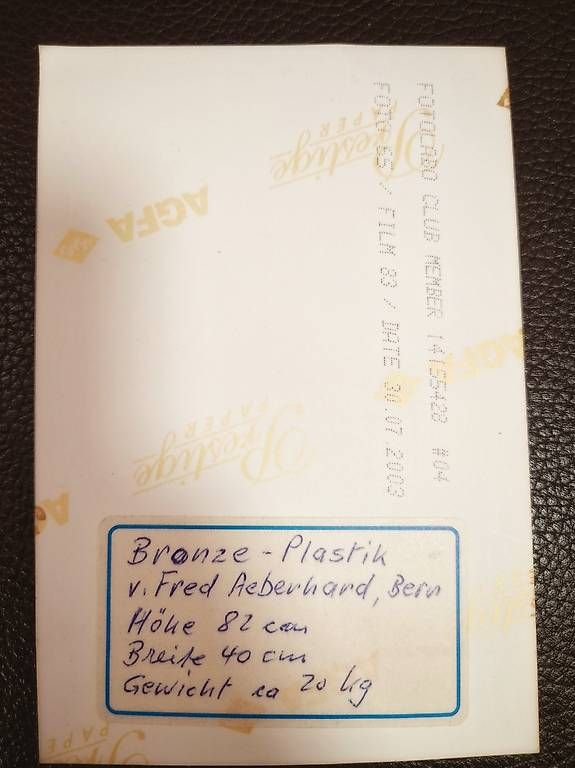 FOTOLABO CLUB MEMBER 14155428 #04
FOTO 65 / FILM 83 / DATE 30.07.2003
Prestige
PAPER
AGFA
AGFA
Prestige
PAPER
Bronze - Plastik
v. Fred Aeberhard, Bern
Höhe 82 cm
Breite 40 cm
Gewicht ca 20 kg